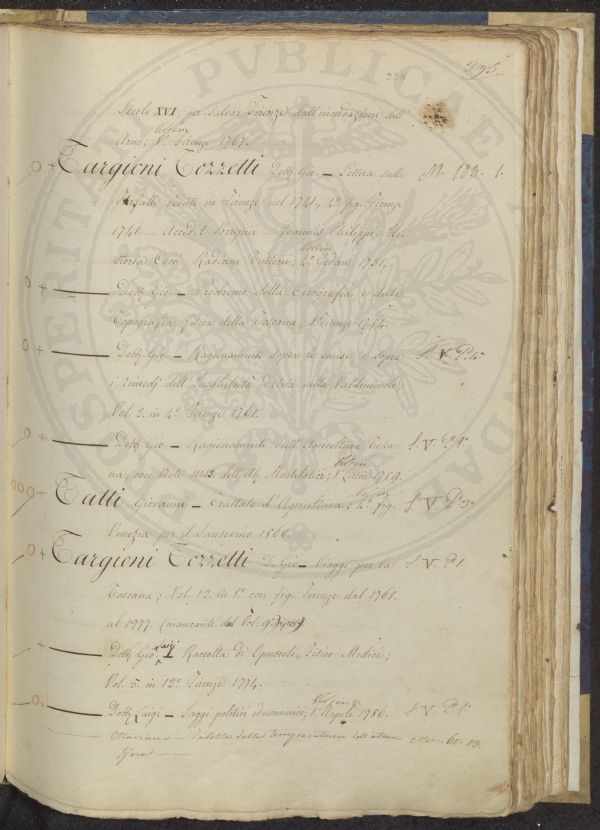 395.
220
Secolo XVI, per salvar Firenze dall'inondazioni dell'
Arno; 8° Firenze 1767.
Targioni Tozzetti Dott. Gio. — Lettera sulle M. 103. 1.
Farfalle vedute in Firenze nel 1741, 4° fig. Firenze
1741 — Accedit Breynii — Joannis Philippi — Hi-
storia Cocci Radicum Tinctorii; 4° Gedani 1731.
— Dott. Gio — Prodromo della Corografia e della
Topografia fisica della Toscana; Firenze 1754.
— Dott. Gio. — Ragionamenti sopra le cause e sopra S. V. P.
i rimedj dell'Insalubrità d'Aria nella Valdinievole;
Vol. 2. in 4° Firenze 1761.
— Dott. Gio — Ragionamenti sull'Agricoltura Tosca- S. V.
na, con Note mss. dell' 8° Lucca 1759.
Tatti Giovanni — Trattato d'Agricoltura; 4° fig. S. V.
Venezia per il Sansovino 1560.
Targioni Tozzetti D. Gio — Viaggi per la S. V. P. 1
Toscana; Vol. 12. in 8° con fig. Firenze dal 1768.
al 1777 (mancante del Vol. 9°
— Dott. Gio. Raccolta di Opuscoli Fisico-Medici;
Vol. 5. in 12° Firenze 1774.
— Dott. Luigi — Saggi politici economici; 8° Napoli 1786. S. V. P.
Ottaviano — della temperatura dell'atmo-
sfera —
PROSPERITATI PVBLICAE